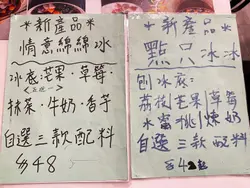 *新產品*
情意綿綿冰
冰底:芒果·草莓
<五選一>
抹茶·牛奶·香芋
自選三款配料
$48
*新產品*
點只冰冰
刨冰底:
荔枝|芒果|草莓
水蜜桃|煉奶
自選三款配料
$42起